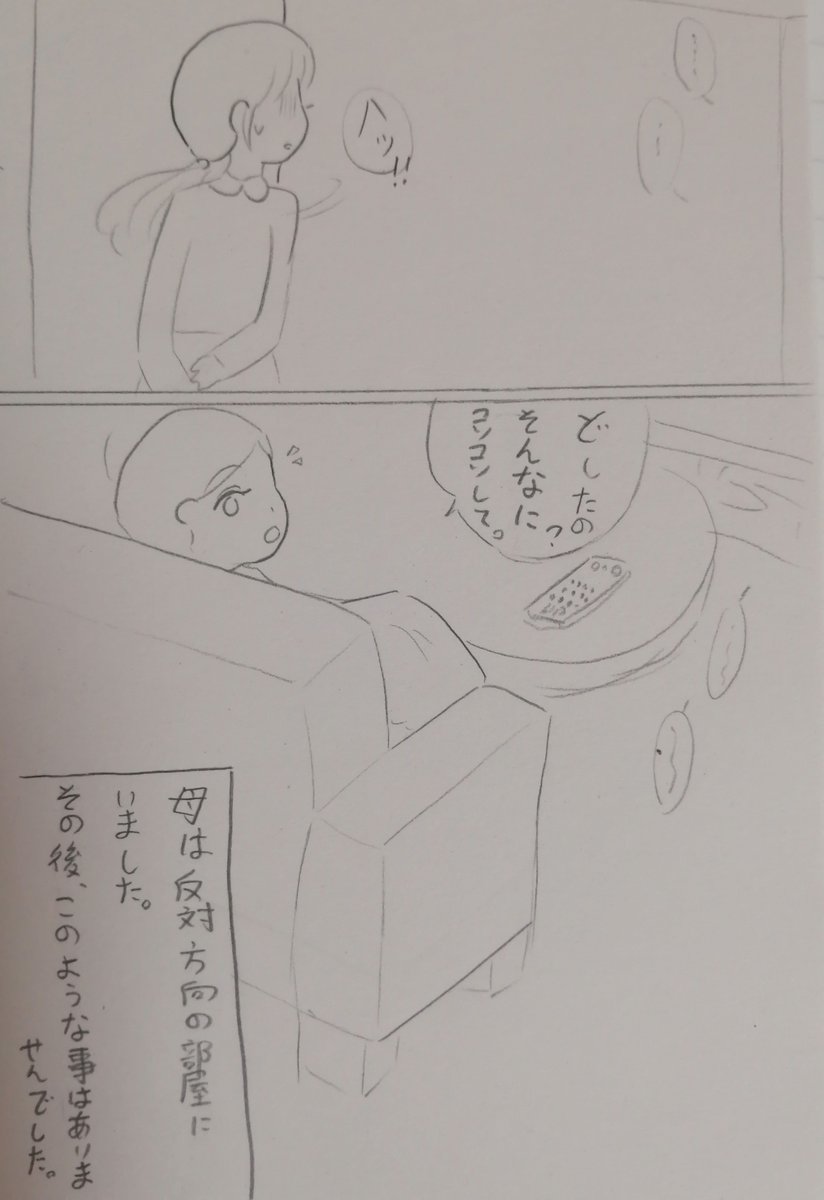 ハッ!!
どしたの?
そんなに
コンコンして。
母は反対方向の部屋に
いました。
その後、このような事はありま
せんでした。